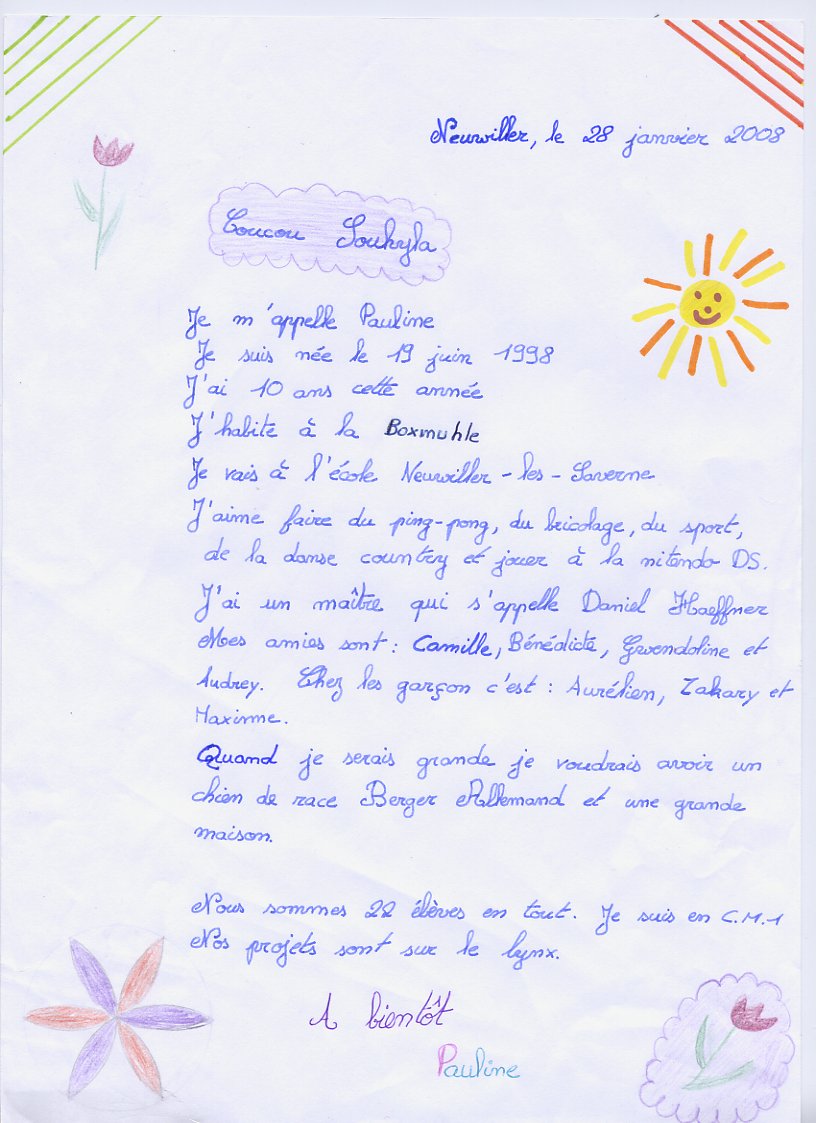 Neuwiller, le 28 janvier 2008
Coucou Souhyla
Je m'appelle Pauline
Je suis née le 19 juin 1998
J'ai 10 ans cette année
J'habite à la Boxmuhle
Je vais à l'école Neuwiller-les-Saverne
J'aime faire du ping-pong, du bricolage, du sport,
de la danse country et jouer à la nitendo DS.
J'ai un maître qui s'appelle Daniel Haeffner
Mes amies sont : Camille, Bénédicte, Gwendoline et
Audrey. Chez les garçon c'est : Aurélien, Zakary et
Maxime.
Quand je serais grande je voudrais avoir un
chien de race Berger Allemand et une grande
maison.
Nous sommes 22 élèves en tout. Je suis en C.M.1
Nos projets sont sur le lynx.
A bientôt
Pauline